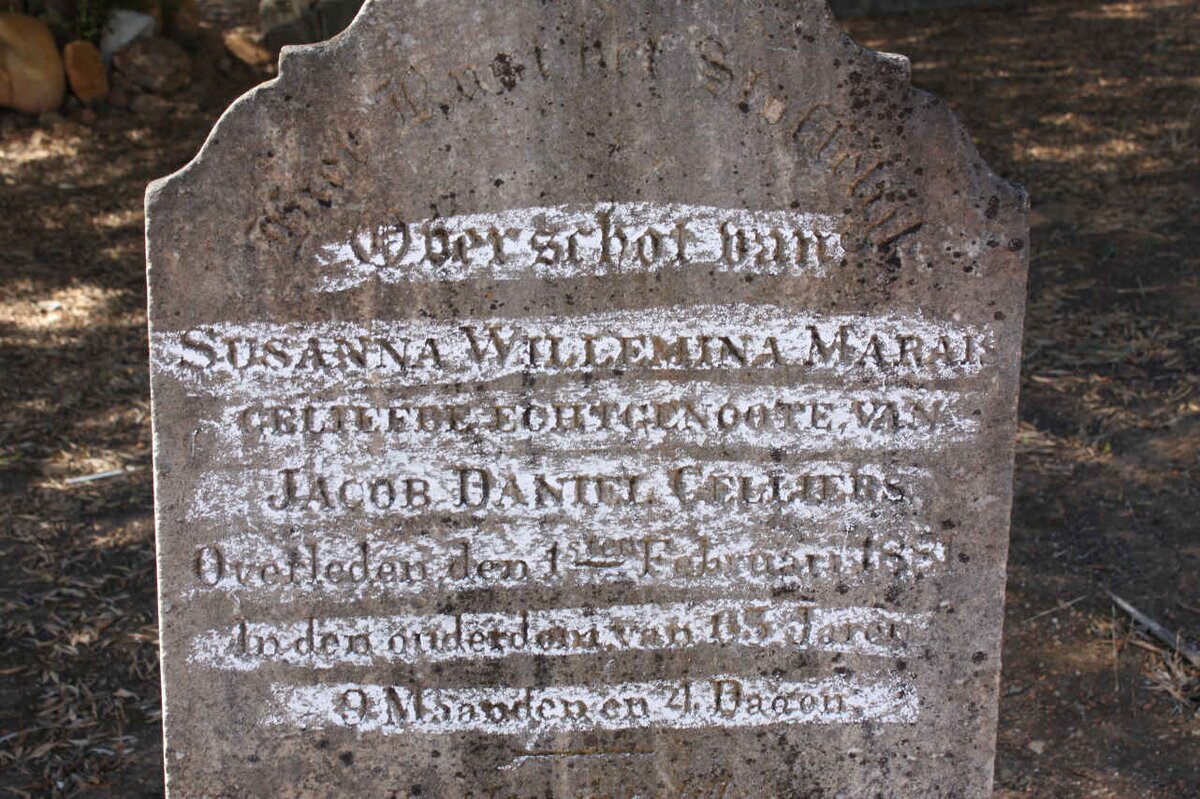 Hier Rust het Stof
Overschot van
SUSANNA WILLEMINA MARAIS
GELIEFDE ECHTGENOOTE VAN
JACOB DANIEL CELLIERS
Overleden den 1sten Februari
In den ouderdom van Jaren
9 Maanden en 4 Dagen